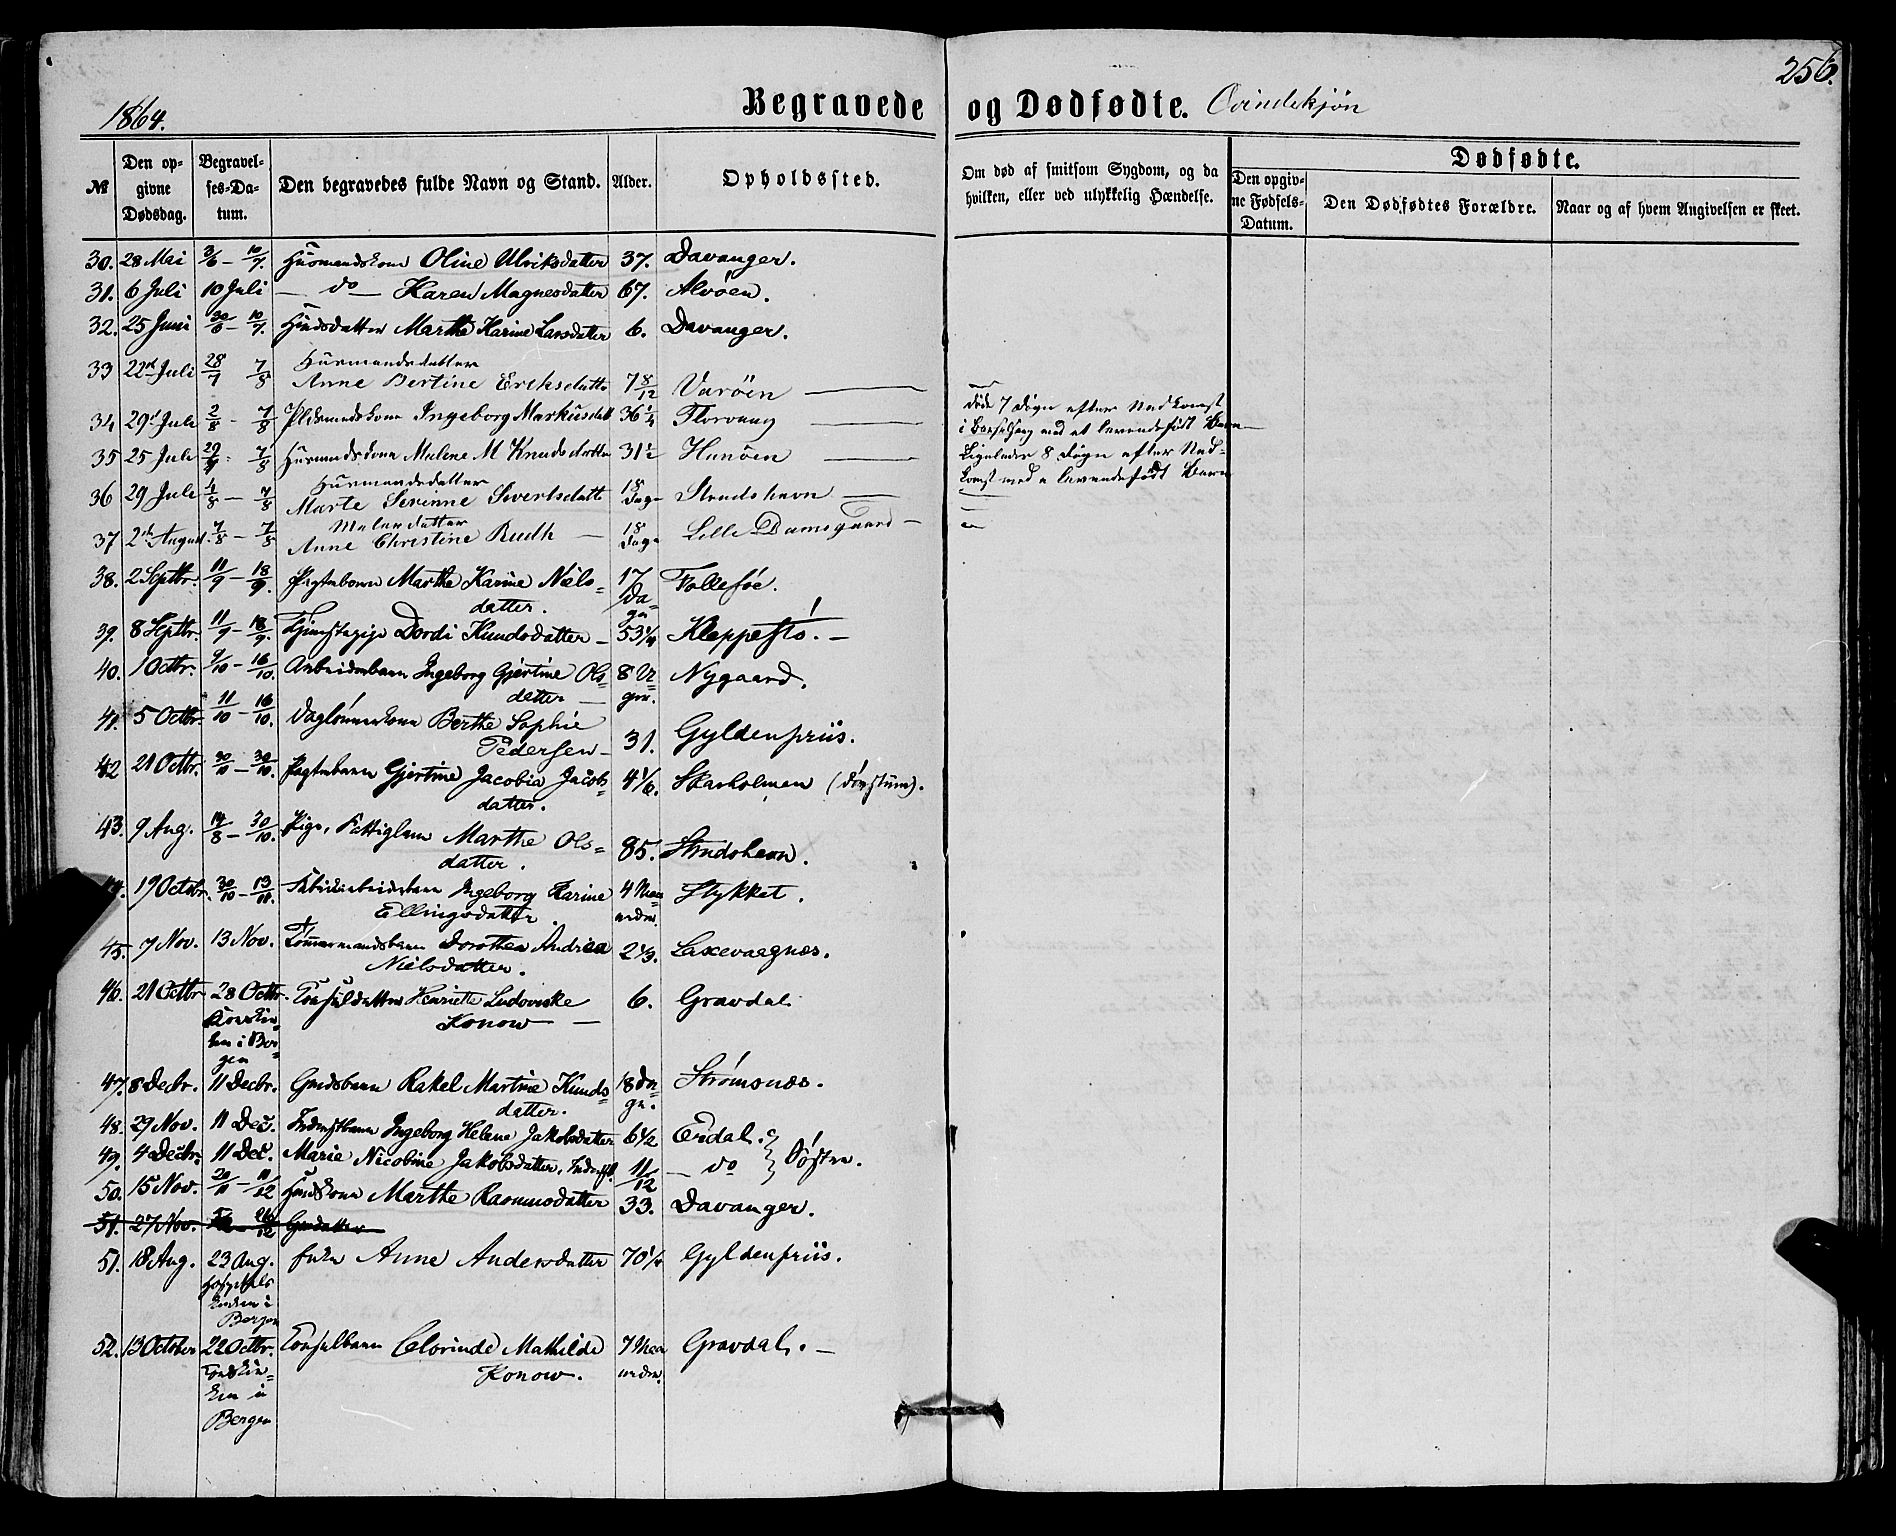 256.
1864.
Begravede og Dødfødte. Qvindekjøn
№
Den opgivne Dødsdag.
Begravelses-Datum.
Den begravedes fulde Navn og Stand.
Alder.
Opholdssted.
Om død af smitsom Sygdom, og da hvilken, eller ved ulykkelig Hændelse.
Dødfødte.
Den opgivne Fødsels-Datum.
Den Dødfødtes Forældre.
Naar og af hvem Angivelsen er skeet.
30. 28 Mai 3/6 – 10/7. Huusmandskone Oline Ulriksdatter 37. Davanger.
31. 6 Juli 10 Juli – do – Karen Magnesdatter 67. Alvøen.
32. 25 Juni 30/6 – 10/7. Huusdatter Marthe Karine Larsdatter 6. Davanger.
33 22de Juli 28/7 7/8 Huusmandsdatter
Anne Bertine Eriksdatter 7 8/12 Varøen
34 29 Juli 2/8 – 7/8 Pldsmandskone Ingeborg Markusdatt 36 1/4 Florvaag
døde 7 Døgn efter Nedkomst
i Barselseng med et levendefødt Barn
35 25 Juli 29/7 – 7/8 Huusmandskone Malene M Knudsdatter 31 1/2 Hanøen
Ligeledes 8 Døgn efter Ned-
komst med et levendefødt Barn
36 29 Juli 4/8 – 7/8 Huusmandsdatter
Marte Serinne Sivertsdatt 18 Dage Strudshavn
37 2de August 7/8 – 7/8 Malerdatter
Anne Christine Rudh 18 Dage Lille Damsgaard
38. 2 Septbr. 11/9 – 18/9. Pigebarn Marthe Karine Niels-
datter. 17 Dage Follesøe.
39. 8 Septbr. 11/9 – 18/9. Tjenestepige Dordi Knudsdatter 53 1/4 Kleppestø.
40. 1 Octbr. 9/10 – 16/10. Arbeiderbarn Ingeborg Gjertine Ols-
datter 8 Uger. Nygaard.
41. 5 Octbr. 11/10 – 16/10. Daglønnerkone Berthe Sophie
Pedersen 31. Gyldenpriis.
42 21 Octbr. 30/10 – 30/10. Pigebarn Gjertine Jacobia Jacobs-
datter. 4 1/6. Skarholmen
43. 9 Aug. 14/8 – 30/10. Pige, Fattiglem Marthe Ols-
datter. 85. Strudshavn.
44. 19 Octobr. 30/10 – 13/11. Fabrikarbeiderbarn Ingeborg Karine
Ellingsdatter. 4 Maaneder. Stykket.
45. 7 Nov. 13 Nov. Tømmermandsbarn Dorothea Andrea
Nielsdatter. 2 1/3. Laxevaagnæs.
46. 21 Octbr 28 Octbr. Consuldatter Henriette Ludoviske
Konow 6. Gravdal.
Korskir-
ken i Ber-
gen
47. 8 Decbr. 11 Decbr. Grdsbarn Rakel Martine Knuds-
datter. 18 Dage. Strømsnæs.
48. 29 Nov. 11 Dec. Inderstbarn Ingeborg Helene Jakobsdatter 6 1/2 Erdal.
49. 4 Decbr. 11 Dec. Marie Nicoline Jakobsdatter, Inderstb. 11/12 – do } Søstre.
50. 15 Nov. 20/11 – 11/12 Huuskone Marthe Rasmusdatter 33. Davanger.
51. 27 Nov. Grdatter
51. 18 Aug. 23 Aug. Enke Anne Andersdatter 70 1/4 Gyldenpriis.
Hospitals
kirken i
Bergen
52. 13 October 22 Octbr. Consulbarn Clorinde Mathilde
Konow. 7 Maaneder. Gravdal.
Korskir-
ken i
Bergen